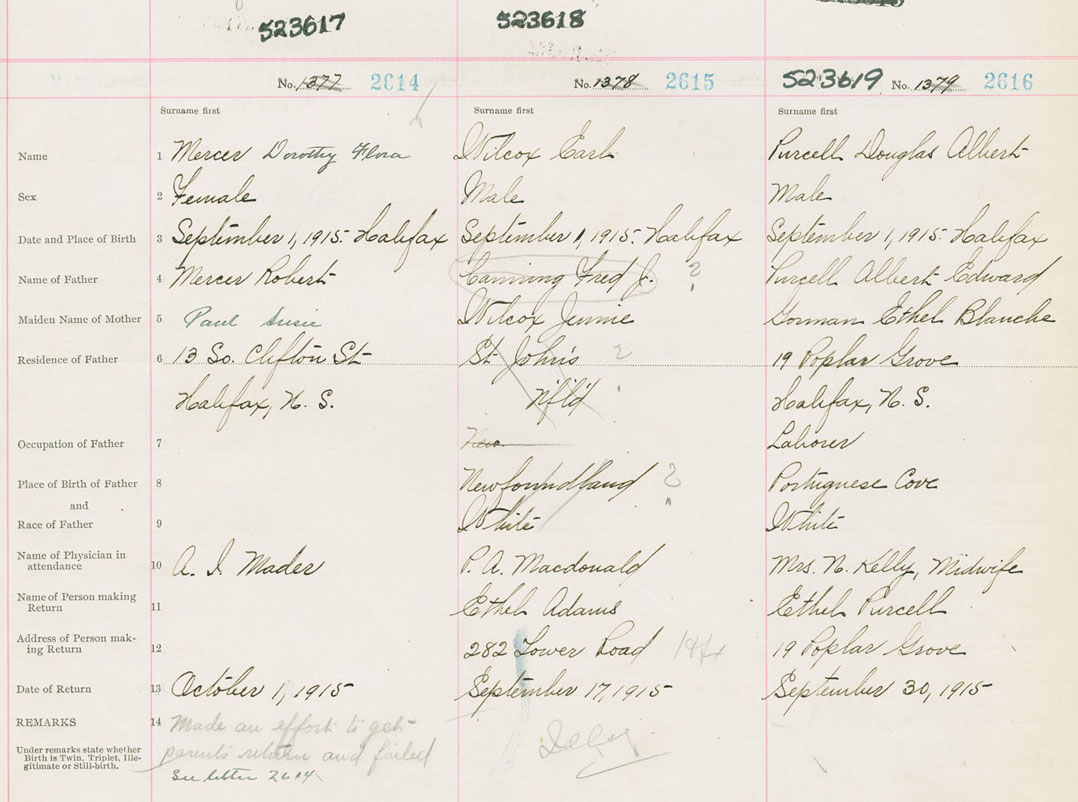 523617
523618
No. 1377 2614
No. 1378 2615
523619 No. 1379 2616
Surname first
Surname first
Surname first
Name 1 Mercer Dorothy Flora Wilcox Earl Purcell Douglas Albert
Sex 2 Female Male Male
Date and Place of Birth 3 September 1, 1915. Halifax September 1, 1915. Halifax September 1, 1915. Halifax
Name of Father 4 Mercer Robert Canning Fred J. ? Purcell Albert Edward
Maiden Name of Mother 5 Paul Susie Wilcox Jennie Gorman Ethel Blanche
Residence of Father 6 13 So. Clifton St St. John's ? 19 Poplar Grove
Halifax, N. S. Nfld Halifax, N. S.
Occupation of Father 7 New Laborer
Place of Birth of Father 8 Newfoundland ? Portuguese Cove
and
Race of Father 9 White White
Name of Physician in
attendance 10 A. I. Mader P. A. Macdonald Mrs. N. Kelly, Midwife
Name of Person making
Return 11 Ethel Adams Ethel Purcell
Address of Person mak-
ing Return 12 282 Tower Road Hfx 19 Poplar Grove
Date of Return 13 October 1, 1915 September 17, 1915 September 30, 1915
REMARKS 14 Made an effort to get
parents return and failed
See letter 2614
Under remarks state whether
Birth is Twin, Triplet, Ille-
gitimate or Still-birth.